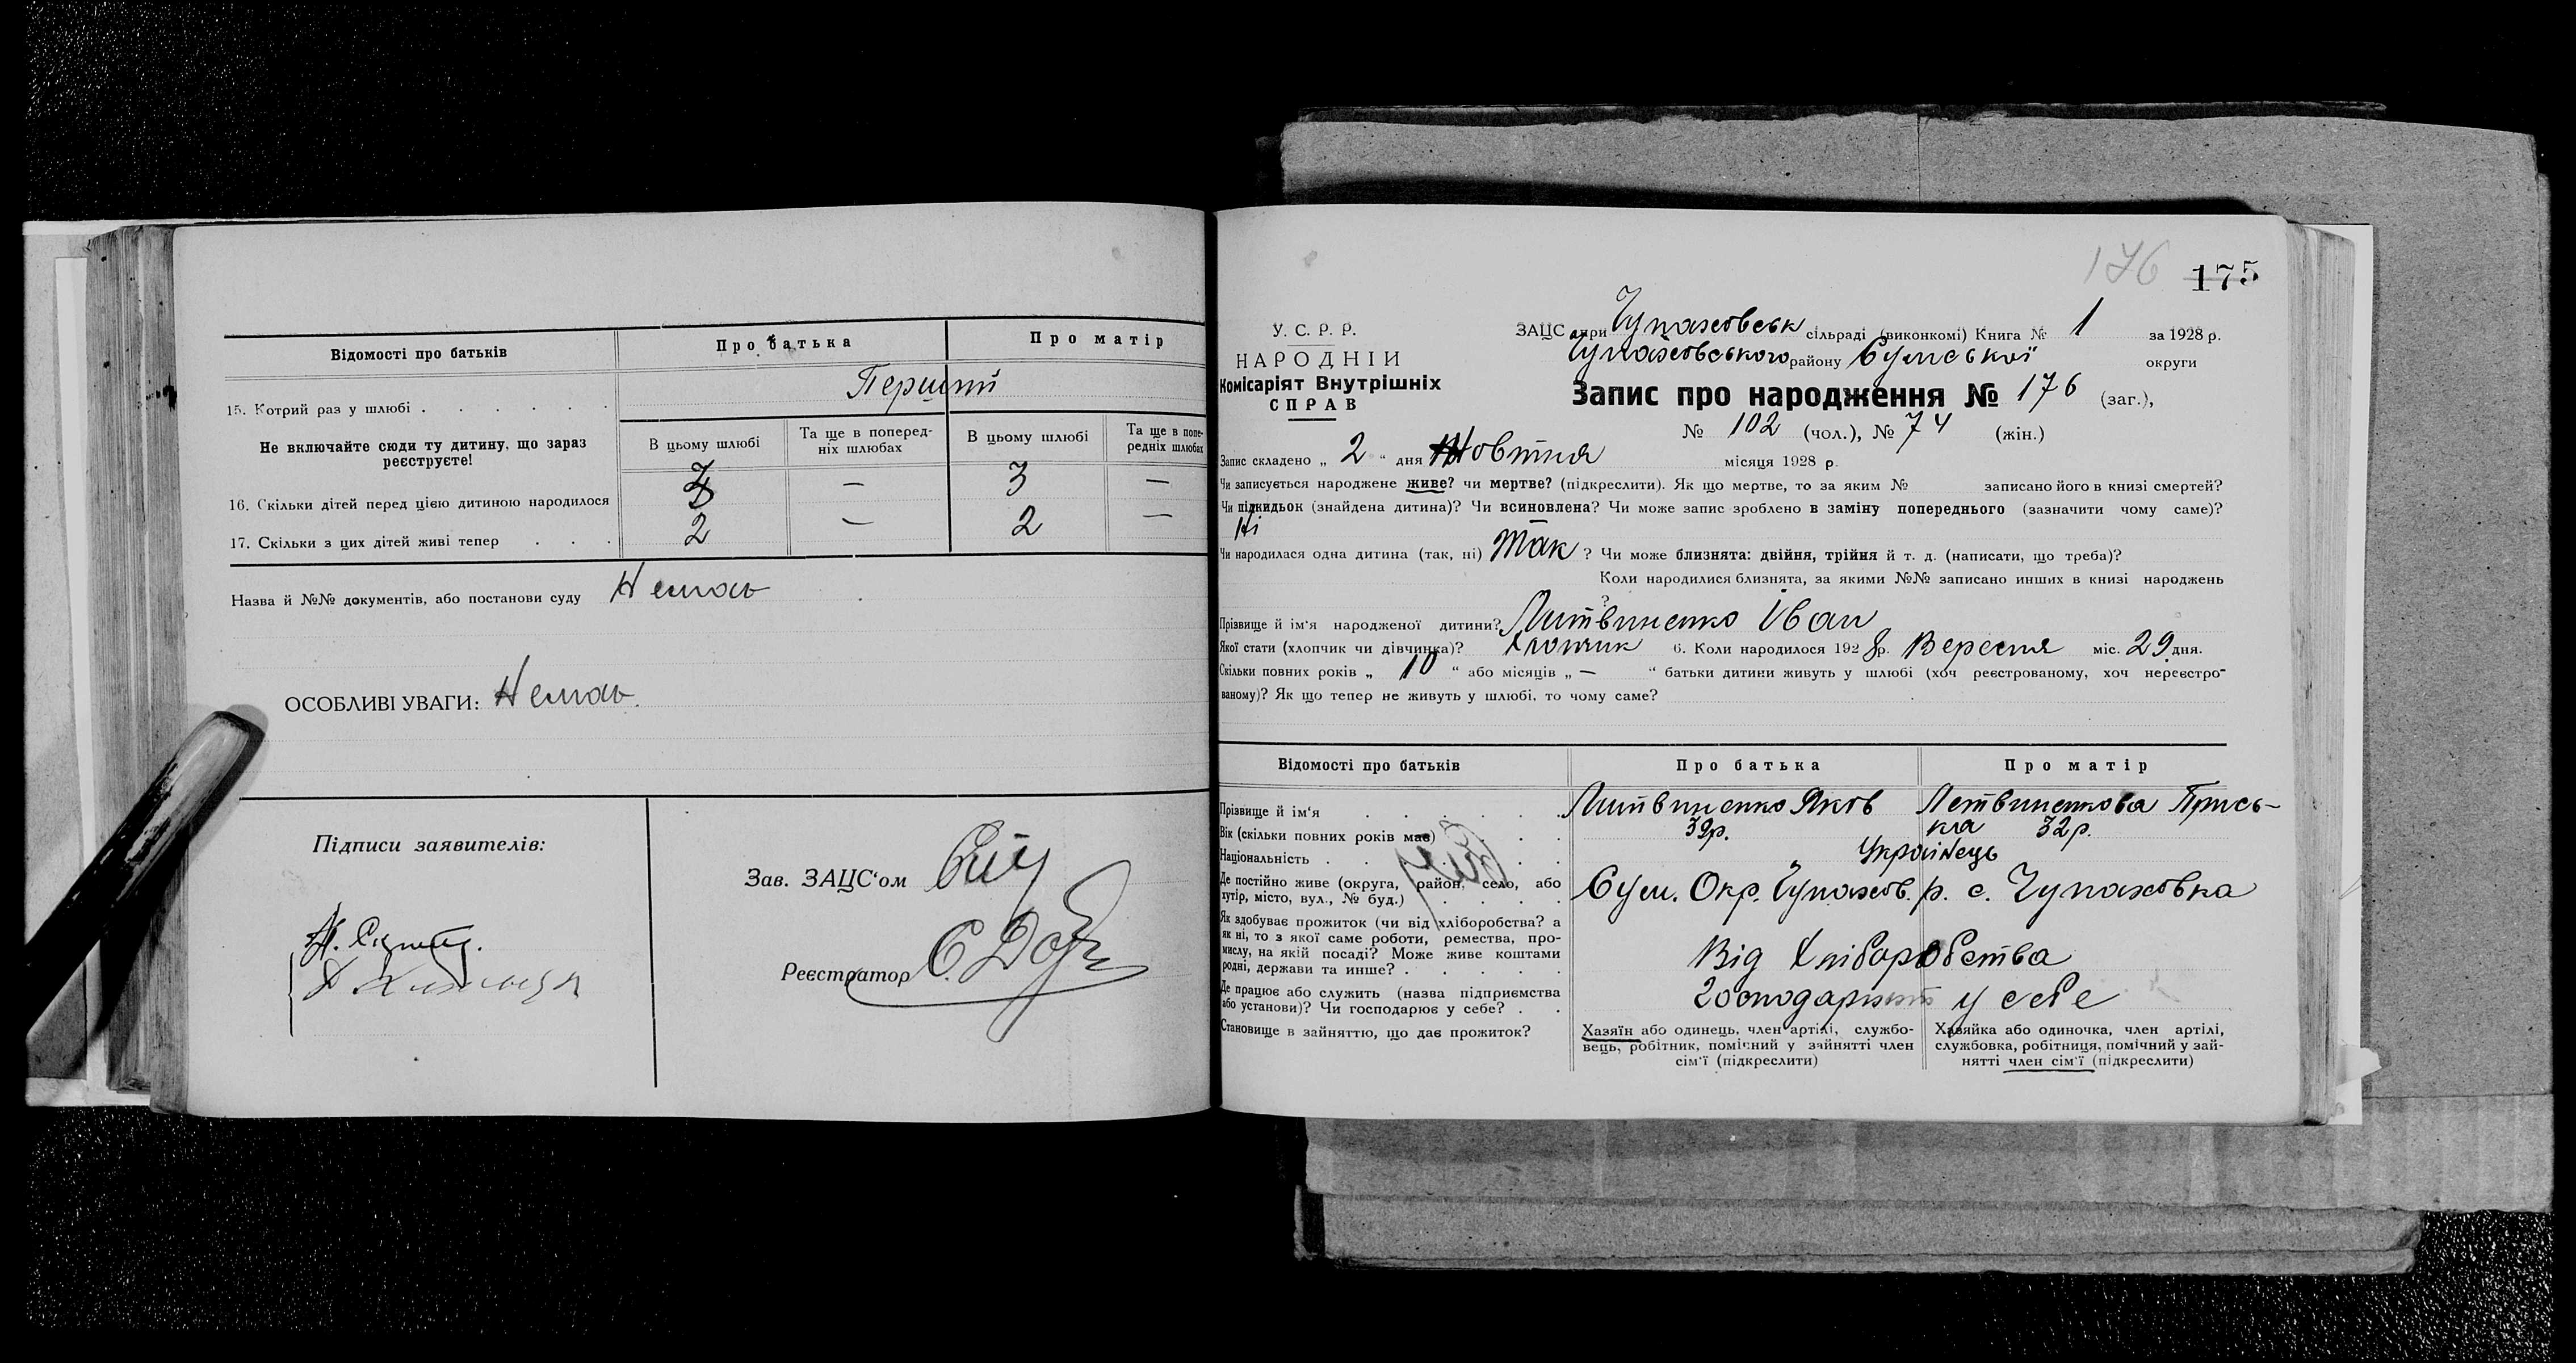 Відомості про батьків
Про батька
Про матір
15. Котрий раз у шлюбі . . . . . .
Перший
Не включайте сюди ту дитину, що зараз
реєструєте!
В цьому шлюбі
Та ще в поперед-
ніх шлюбах
В цьому шлюбі
Та ще в попе-
редніх шлюбах
16. Скільки дітей перед цією дитиною народилося
3 — 3 —
17. Скільки з цих дітей живі тепер . . .
2 — 2 —
Назва й №№ документів, або постанови суду Немає
ОСОБЛИВІ УВАГИ: Немає
Підписи заявителів:
Зав. ЗАЦС'ом
Реєстратор
176 175
У. С. Р. Р.
НАРОДНІЙ
Комісаріят Внутрішніх
СПРАВ
ЗАЦС при Чупаховськ сільраді (виконкомі) Книга № 1 за 1928 р.
Чупаховського району Сумської округи
Запис про народження № 176 (заг.),
№ 102 (чол.), № 74 (жін.)
Запис складено „ 2 “ дня Жовтня місяця 1928 р.
Чи записується народжене живе? чи мертве? (підкреслити). Як що мертве, то за яким № записано його в книзі смертей?
Чи підкидьок (знайдена дитина)? Чи всиновлена? Чи може запис зроблено в заміну попереднього (зазначити чому саме)?
Ні
Чи народилася одна дитина (так, ні) Так ? Чи може близнята: двійня, трійня й т. д. (написати, що треба)?
Коли народилися близнята, за якими №№ записано инших в книзі народжень
?
Прізвище й ім'я народженої дитини? Литвиненко Іван
Якої стати (хлопчик чи дівчинка)? Хлопчик 6. Коли народилося 1928 р. Вересня міс. 29 дня.
Скільки повних років „ 10 “ або місяців „ — “ батьки дитини живуть у шлюбі (хоч реєстрованому, хоч нереєстро-
ваному)? Як що тепер не живуть у шлюбі, то чому саме?
Відомості про батьків
Про батька
Про матір
Прізвище й ім'я . . . . . .
Литвиненко Яков Летвиненкова Прись-
Вік (скільки повних років має) . .
39р. кла 32р.
Національність . . . . . . .
Українець
Де постійно живе (округа, район, село, або
хутір, місто, вул., № буд.) . . . .
Сум. Окр. Чупахов. р. с. Чупаховка
Як здобуває прожиток (чи від хліборобства? а
як ні, то з якої саме роботи, ремества, про-
мислу, на якій посаді? Може живе коштами
родні, держави та инше? . . . . .
Від Хліборобства
Де працює або служить (назва підприємства
або установи)? Чи господарює у себе? . .
у себе
Становище в зайняттю, що дає прожиток?
Хазяїн або одинець, член артілі, службо-
вець, робітник, помічний у зайнятті член
сім'ї (підкреслити)
Хазяйка або одиночка, член артілі,
службовка, робітниця, помічний у зай-
нятті член сім'ї (підкреслити)